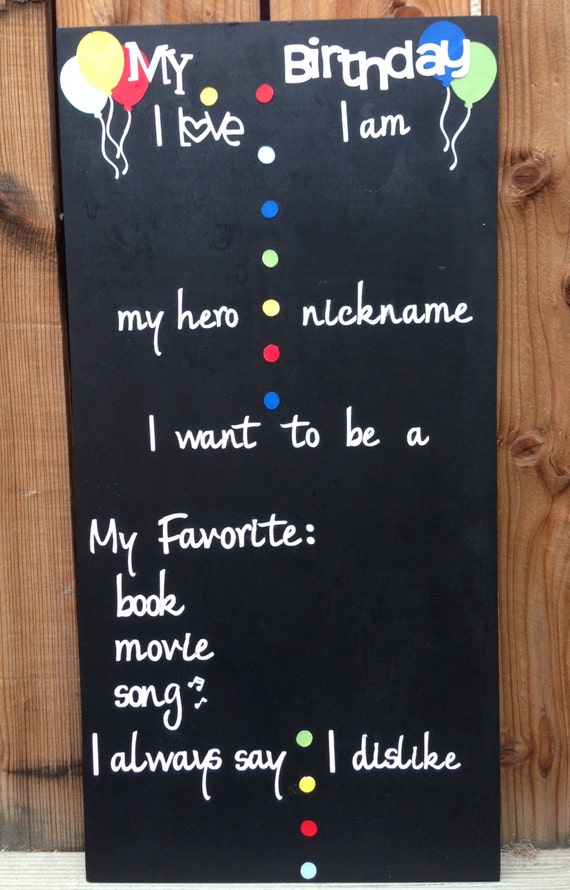 My Birthday
I love I am
my hero nickname
I want to be a
My Favorite:
book
movie
song
I always say I dislike